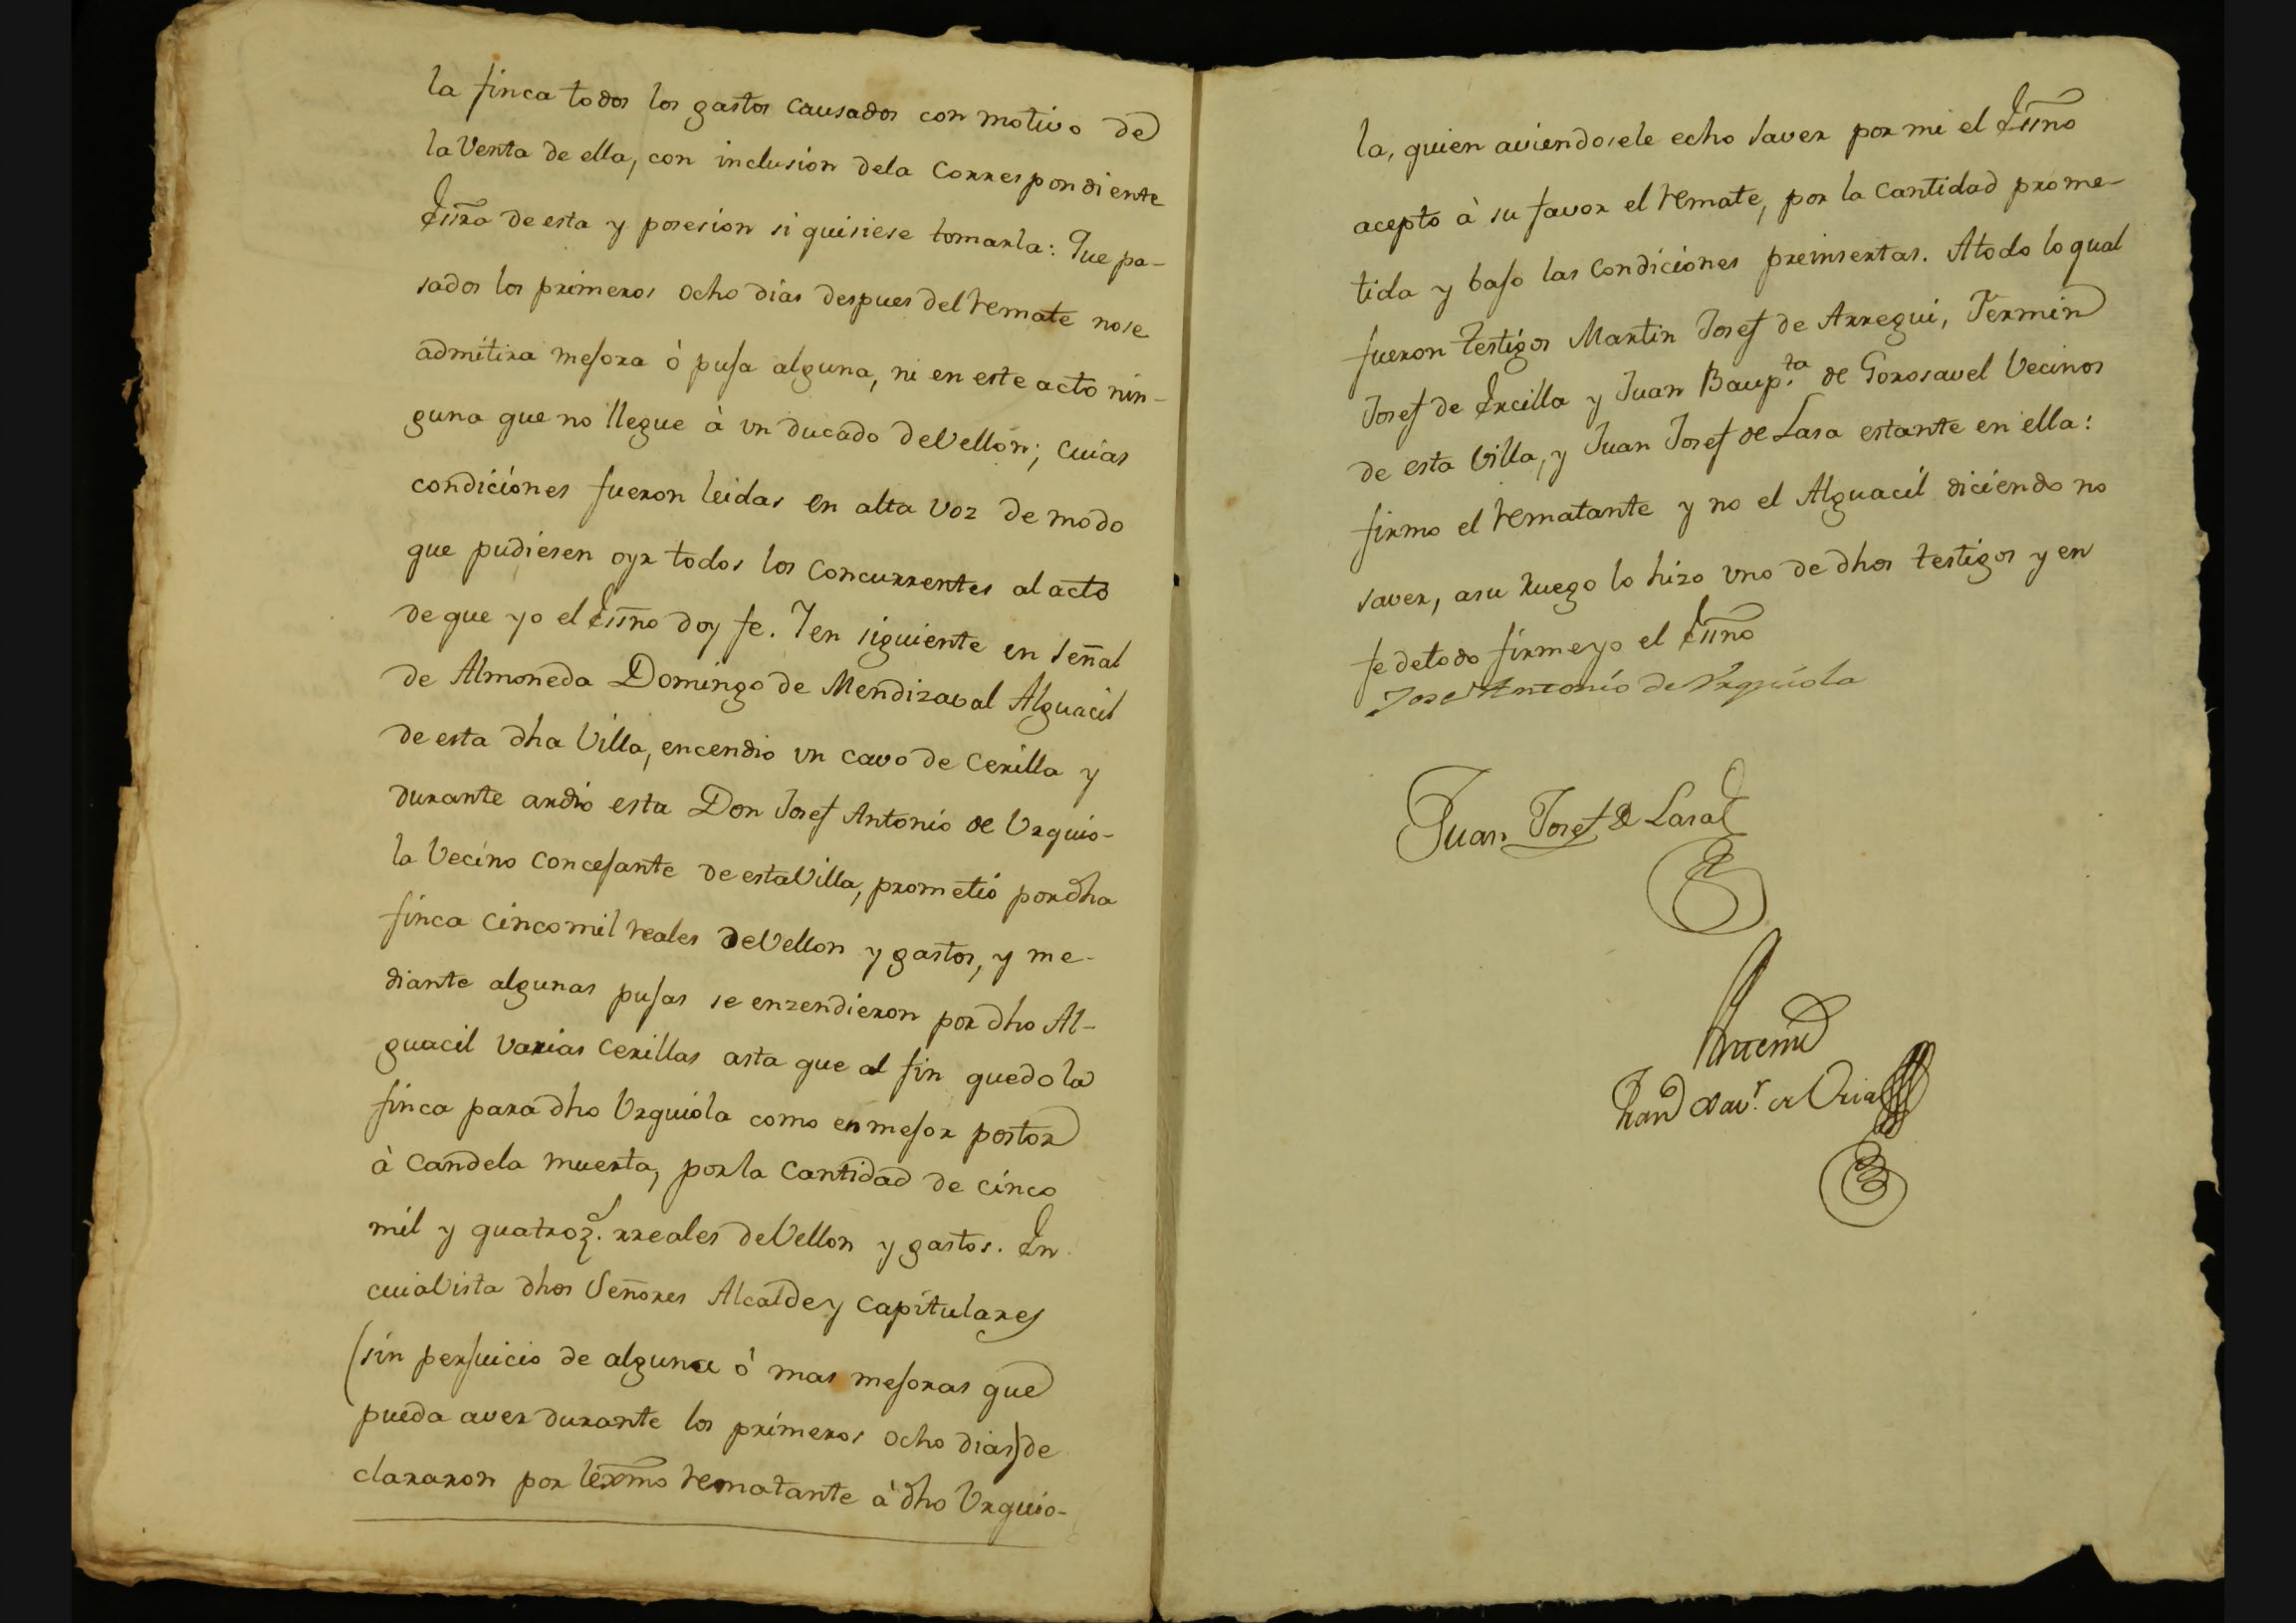 la finca todos los gastos causados con motivo de
la Venta de ella, con inclusion dela Correspondiente
Essra de esta y posesion si quisiese tomarla: Que pa-
sados los primeros ocho dias despues del remate nose
admitira mejora ò puja alguna, ni en este acto nin-
guna que no llegue à vn ducado deVellon; cuias
condiciones fueron leidas en alta voz de modo
que pudiesen oyr todos los Concurrentes al acto
de que yo el Essno doy fe. Y en siguiente en señal
de Almoneda Domingo de Mendizaval Alguacil
de esta dha Villa, encendio vn cavo de Cerilla y
durante ardio esta Don Josef Antonio de Urquio-
la Vecino concejante de estaVilla, prometió pordha
finca cincomil reales deVellon y gastos, y me-
diante algunas pujas se enzendieron por dho Al-
guacil varias Cerillas asta que al fin quedo la
finca para dho Urquiola como en mejor postor
à Candela muerta, porla Cantidad de cinco
mil y quatroz. rreales deVellon y gastos. En
cuiaVista dhos Señores Alcalde y Capitulares
(sin perjuicio de alguna ò mas mejoras que
pueda aver durante los primeros ocho dias) de
clararon por lexmo rematante à dho Urquio-
la, quien aviendosele echo saver por mi el Essno
acepto à su favor el remate, por la Cantidad prome-
tida y bajo las Condiciones preinsertas. Atodo lo qual
fueron testigos Martin Josef de Arregui, Fermin
Josef de Ercilla y Juan Baup.ta de Gorosavel Vecinos
de esta Villa, y Juan Josef de Lasa estante en ella:
firmo el rematante y no el Alguacil diciendo no
saver, asu ruego lo hizo vno de dhos testigos y en
fe detodo firmeyo el Essno
Jose Antonio de Urquiola
Juan Josef de Lasa
Antemi
Fran.co Xav.r de Oria